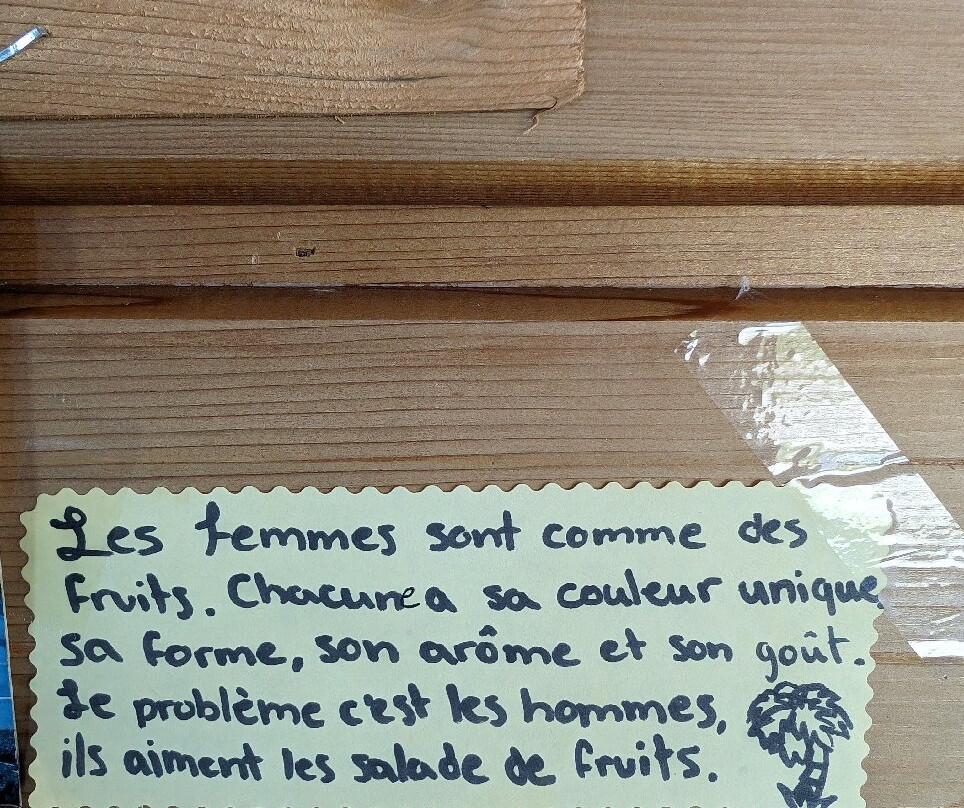 Les femmes sont comme des
fruits. Chacune a sa couleur unique,
sa forme, son arôme et son goût.
Le problème c'est les hommes,
ils aiment les salade de fruits.